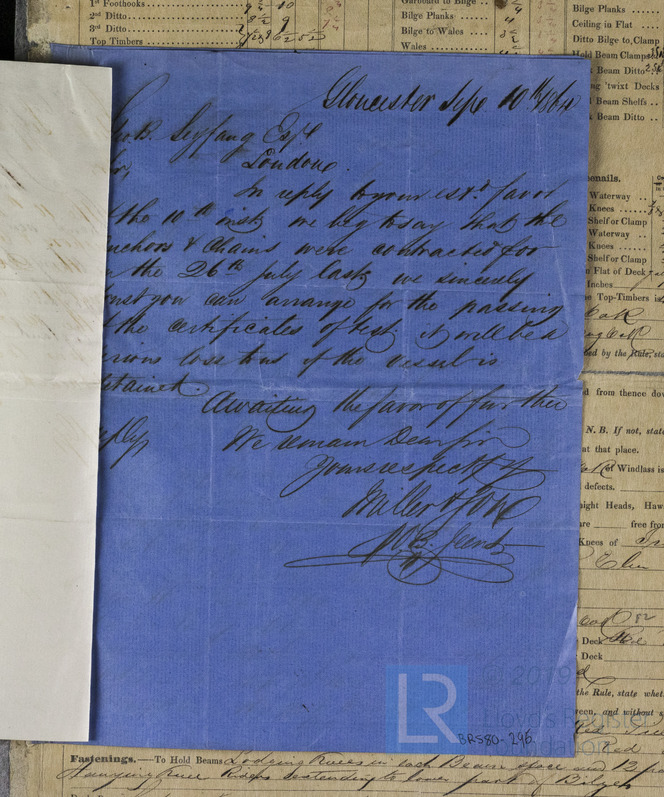 1st Foothooks
2nd Ditto
3rd Ditto
Top Timbers
Garboard to Bilge
Bilge Planks
Bilge to Wales
Wales
Bilge Planks
Ceiling in Flat
Ditto Bilge to Clamp
Hold Beam Clamps
Beam Ditto
'twixt Decks
Beam Shelfs
Beam Ditto
Gloucester Sepr 10th 1864
Geo. B. Seyfang Esqre
London.
In reply to your estd. favor
the 10th inst, we beg to say that the
nchors & Chains were contracted for
the 26th July last, we sincerely
you can arrange for the passing
the certificates of test. it will be a
rious loss to us if the vessel is
etained.
Awaiting the favor of further
We remain Dear Sir
Yours respectfy
Miller & Son
Waterway
Knees
Shelf or Clamp
Waterway
Knees
Shelf or Clamp
Flat of Deck
Inches
Top-Timbers is
by the Rule, sta
from thence dow
N.B. If not, state
at that place.
Windlass is
defects.
ight Heads, Haw
free from
Knees of
Elm
Deck
Deck
the Rule, state whet
and without s
Red
LR
2019
Lloyd's Register
Foundation
BRS80-296
Fastenings.—To Hold Beams Lodging Knees in each Beam space and 12 pa
Hanging Knee Riders extending to lower part of Bilges